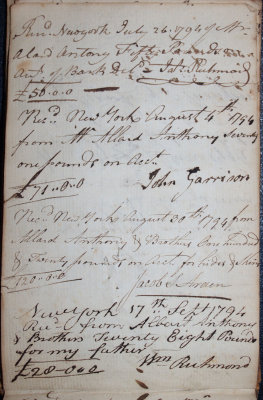 Rec'd Newyork July 26. 1794 of Mr
Alad Antony Fifty Pounds on
Acct. of Bark Del'd Jas. Richmond
£50.0.0
Rec'd New York August 4th 1794
from Mr Allard Anthony Seventy
one pounds on Acct
£71.0.0 John Garrison
Rec'd New York August 30th 1794 from
Allard Anthony & Brothers One hundred
& Twenty pounds on Acct for hides & Skins
120.0.0
Jacob S. Arden
New York 17th Sept 1794
Rec'd from Albert Anthony
& Brothers Seventy Eight Pounds
for my father
£78-0-0 Wm Richmond